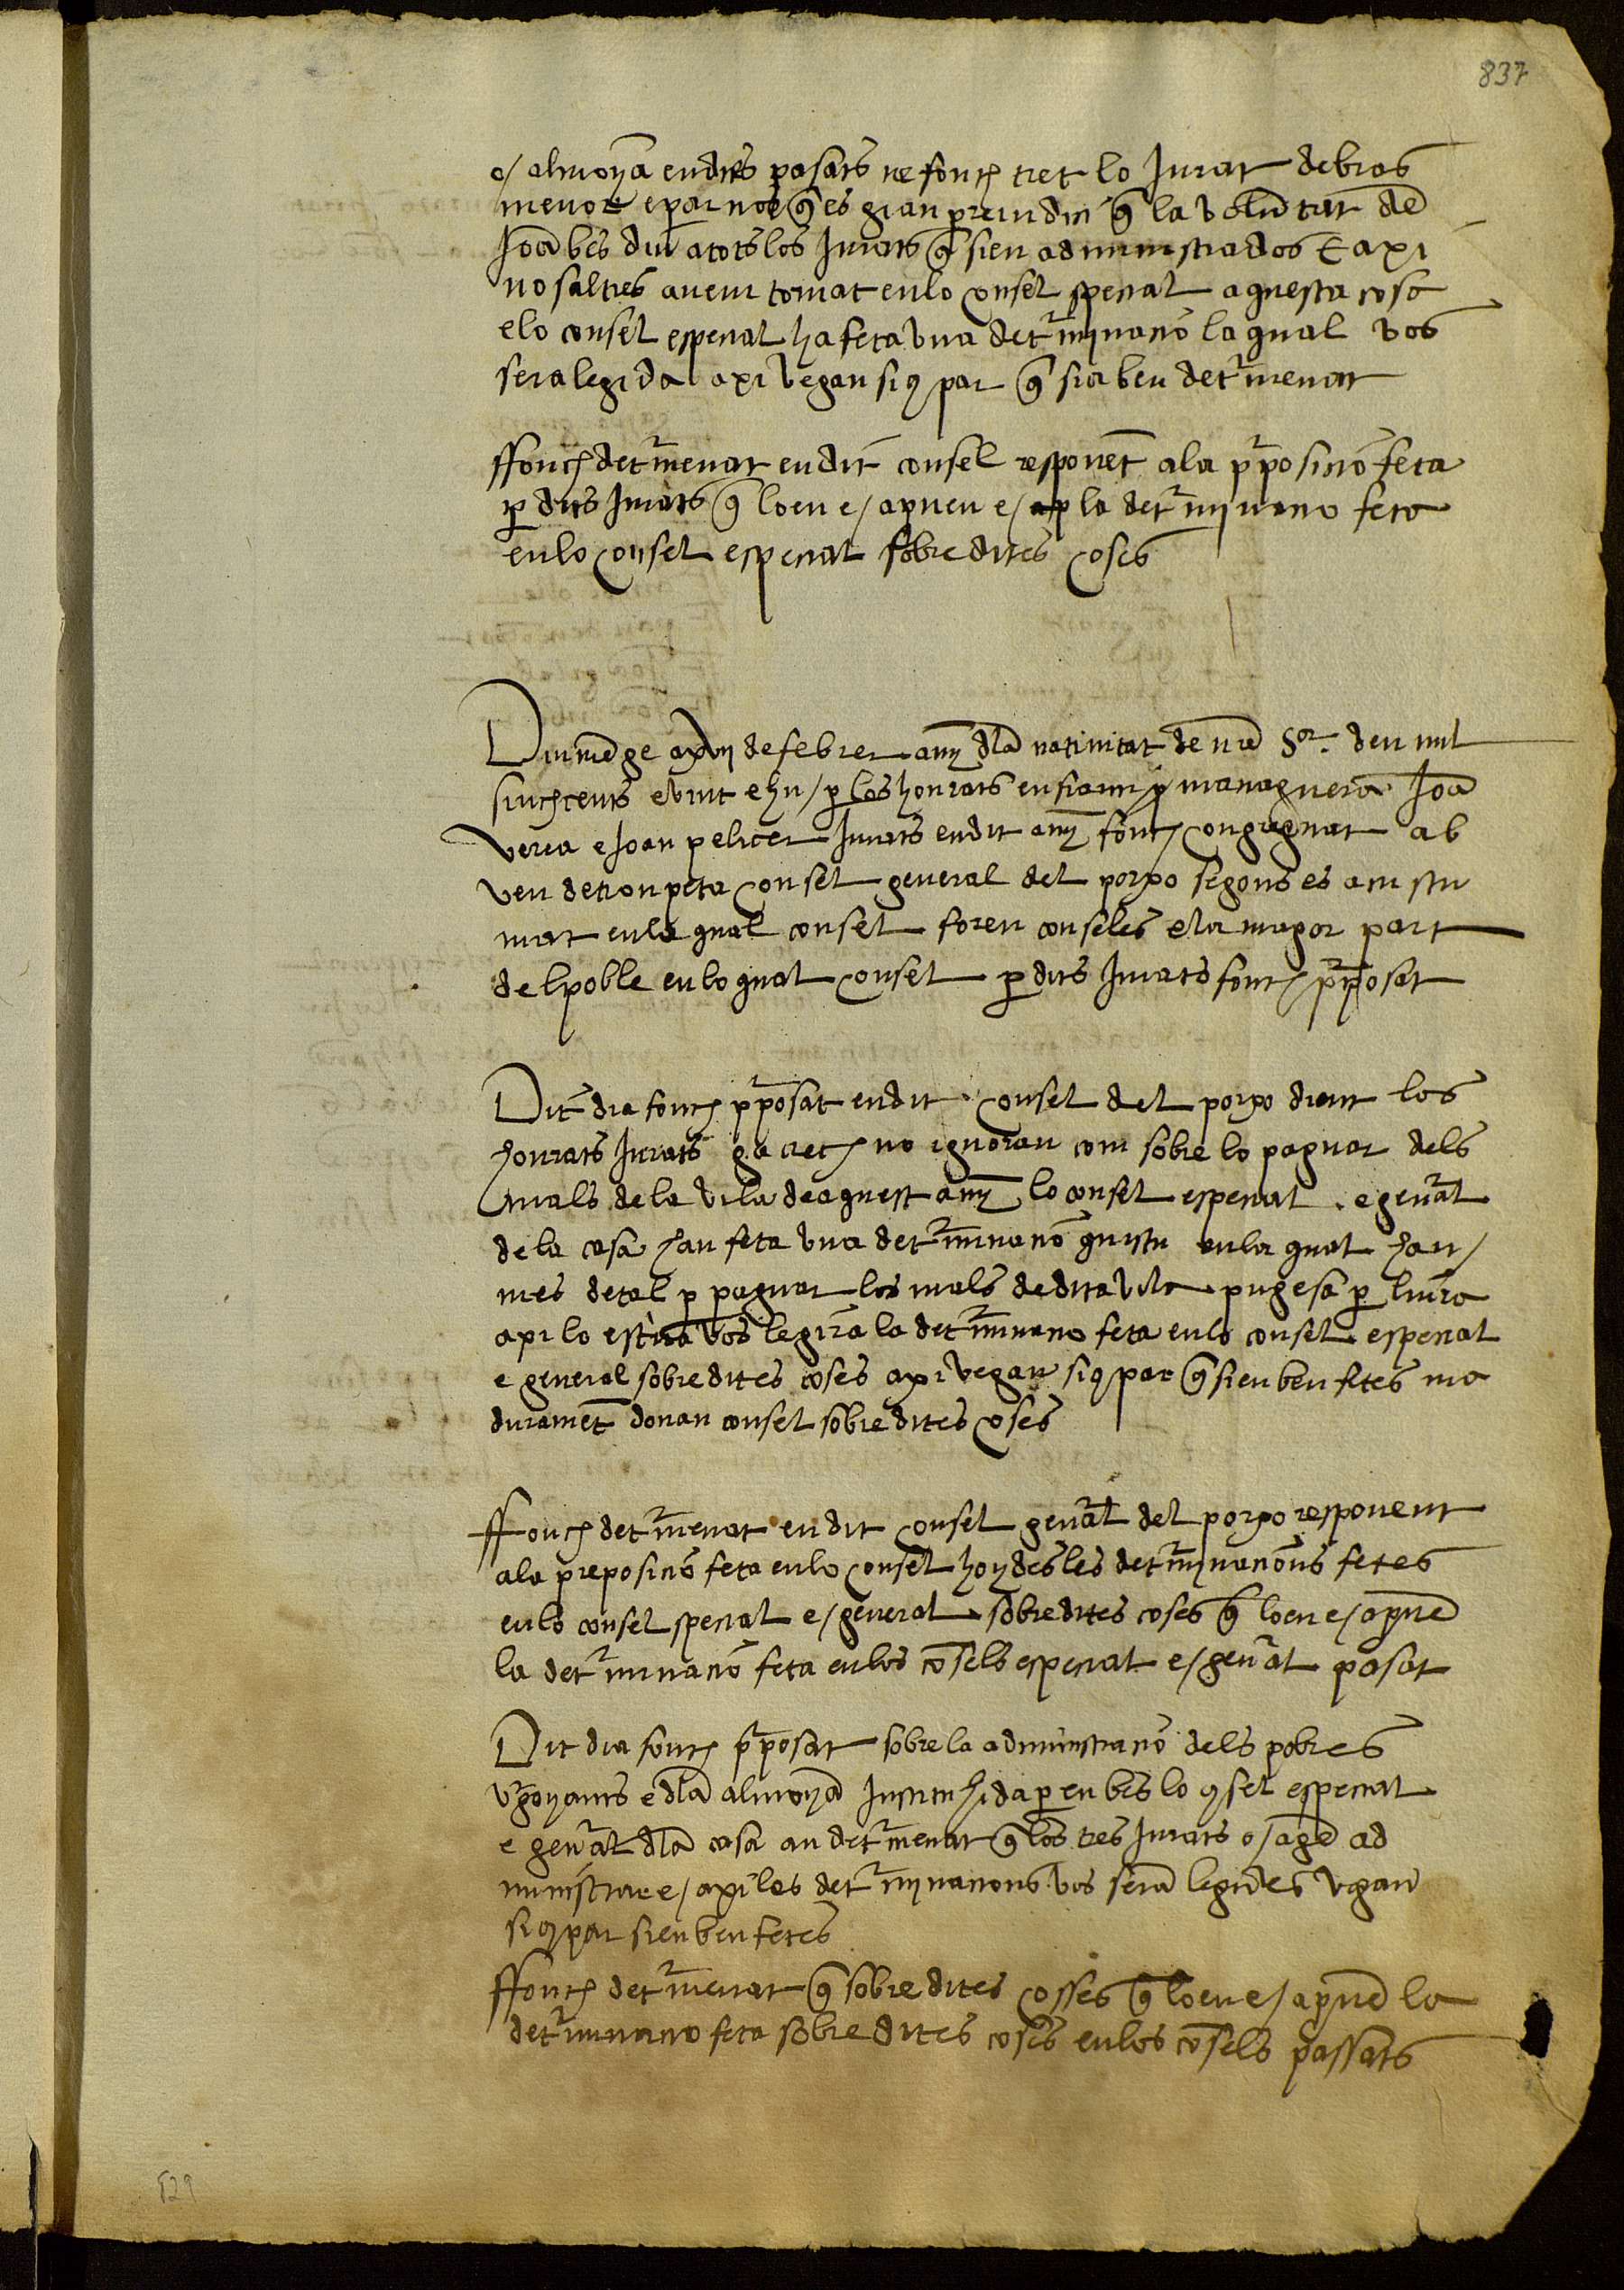 837
o/ almoyna en dies pasats ne fonch tret lo Jurat de bras
menor e par nos q̃ es gran preiudici q̃ la voluntat de
Joã bes diu a tots los Jurats q̃ sien administrados E axi
nosaltres avem tornat en lo consel special aquesta cosa
e lo consel especial ha feta vna det̃minacio la qual vos
sera legida axi vegan si q̃ par q̃ sia ben det̃menat
ffonch det̃menat en dit consel responẽt a la p̃posicio feta
p dits Jurats q̃ loen e/ aproven e/ ap la det̃minacio feta
en lo consel especial sobre dites coses
Diumẽge a xvij de febrer any dla nativitat de nr̃e Sor. deu mil
sinchcents e vint e hu / p los honrats en managuera Joã
verea e Joan pelicer Jurats en dit any fonch congregat ab
veu de tronpeta consel general del porxo segons es acustu
mat en la qual consel foren conseles e la magor part
del poble en lo qual consel p dits Jurats fonch p̃posat
Dit dia fonch p̃posat en dit consel del porxo dient los
honrats Jurats ga crech no ignoran com sobre lo paguar dels
mals de la vila de aquest any lo consel especial e gen̄al
de la casa han feta vna det̃minacio en la qual han/
mes de tal p paguar los mals de dita vila pugesa p liura
axi lo escriva vos legira la det̃minacio feta en lo consel especial
e general sobre dites coses axi vegan si q̃ par q̃ sien ben fetes ma
durament donan consel sobre dites coses
ffonch det̃menat en dit consel gen̄al del porxo responent
a la preposicio feta en lo consel hoydes les det̃minacions fetes
en lo consel special e/ general sobre dites coses q̃ loen e/ aproven
la det̃minacio feta en los cõsels especial e/ gen̄al pasat
Dit dia fonch p̃posat sobre la administracio dels pobres
v̄goyants e dla almoyna Instituhida p en bes lo cõsel especial
e gen̄al dla casa an det̃menat q̃ los tres Jurats o/ agen ad
ministrar e/ axi les det̃minacions vos sera legides vegan
si q̃ par sien ben fetes
ffonch det̃menat q̃ sobre dites cosses q̃ loen e/ aproven la
det̃minacio feta sobre dites coses en los cõsels passats
829